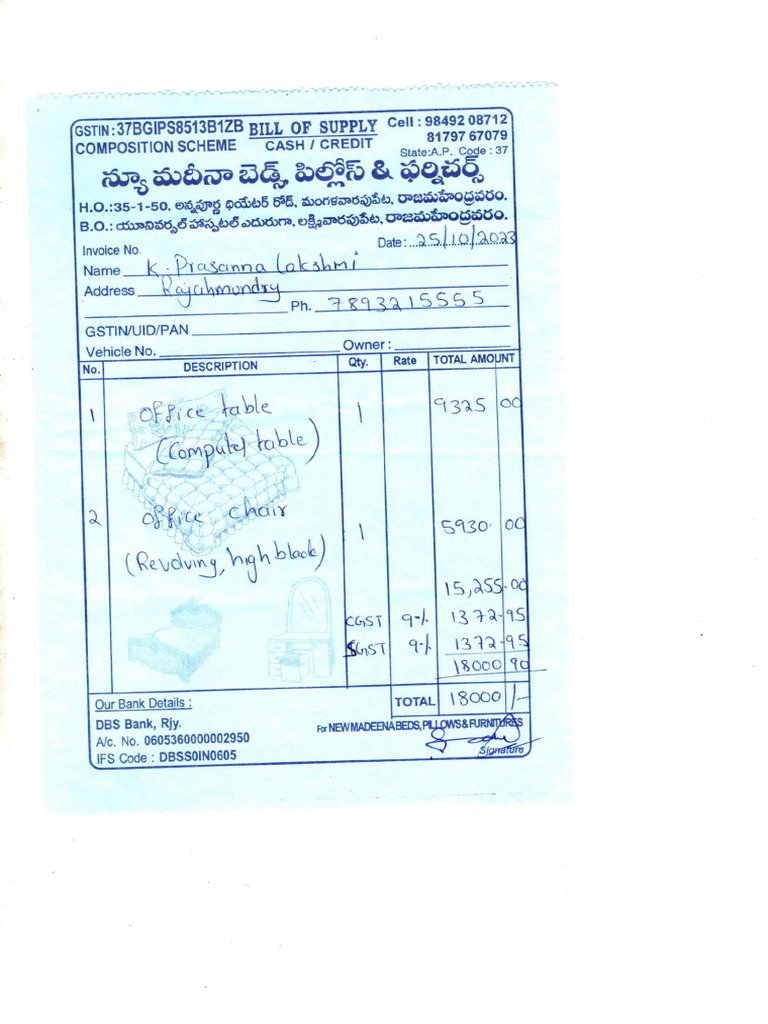 GSTIN : 37BGIPS8513B1ZB BILL OF SUPPLY Cell : 98492 08712
COMPOSITION SCHEME CASH / CREDIT 81797 67079
State:A.P. Code : 37
న్యూ మదీనా బెడ్స్, పిల్లోస్ & ఫర్నిచర్స్
H.O.:35-1-50, అన్నపూర్ణ థియేటర్ రోడ్, మంగళవారపుపేట, రాజమహేంద్రవరం.
B.O.: యూనివర్సల్ హాస్పటల్ ఎదురుగా, లక్ష్మివారపుపేట, రాజమహేంద్రవరం.
Invoice No. Date: 25/10/2023
Name K. Prasanna Lakshmi
Address Rajahmundry
Ph. 7893215555
GSTIN/UID/PAN
Vehicle No. Owner :
No. DESCRIPTION Qty. Rate TOTAL AMOUNT
1 Office table 1 9325 00
(Computer table)
2 Office chair 1 5930 00
(Revolving, high black)
15,255-00
CGST 9% 1372-95
SGST 9% 1372-95
18000 90
TOTAL 18000/-
Our Bank Details :
DBS Bank, Rjy.
A/c. No. 0605360000002950
IFS Code : DBSS0IN0605
For NEW MADEENA BEDS, PILLOWS & FURNITURES
Signature